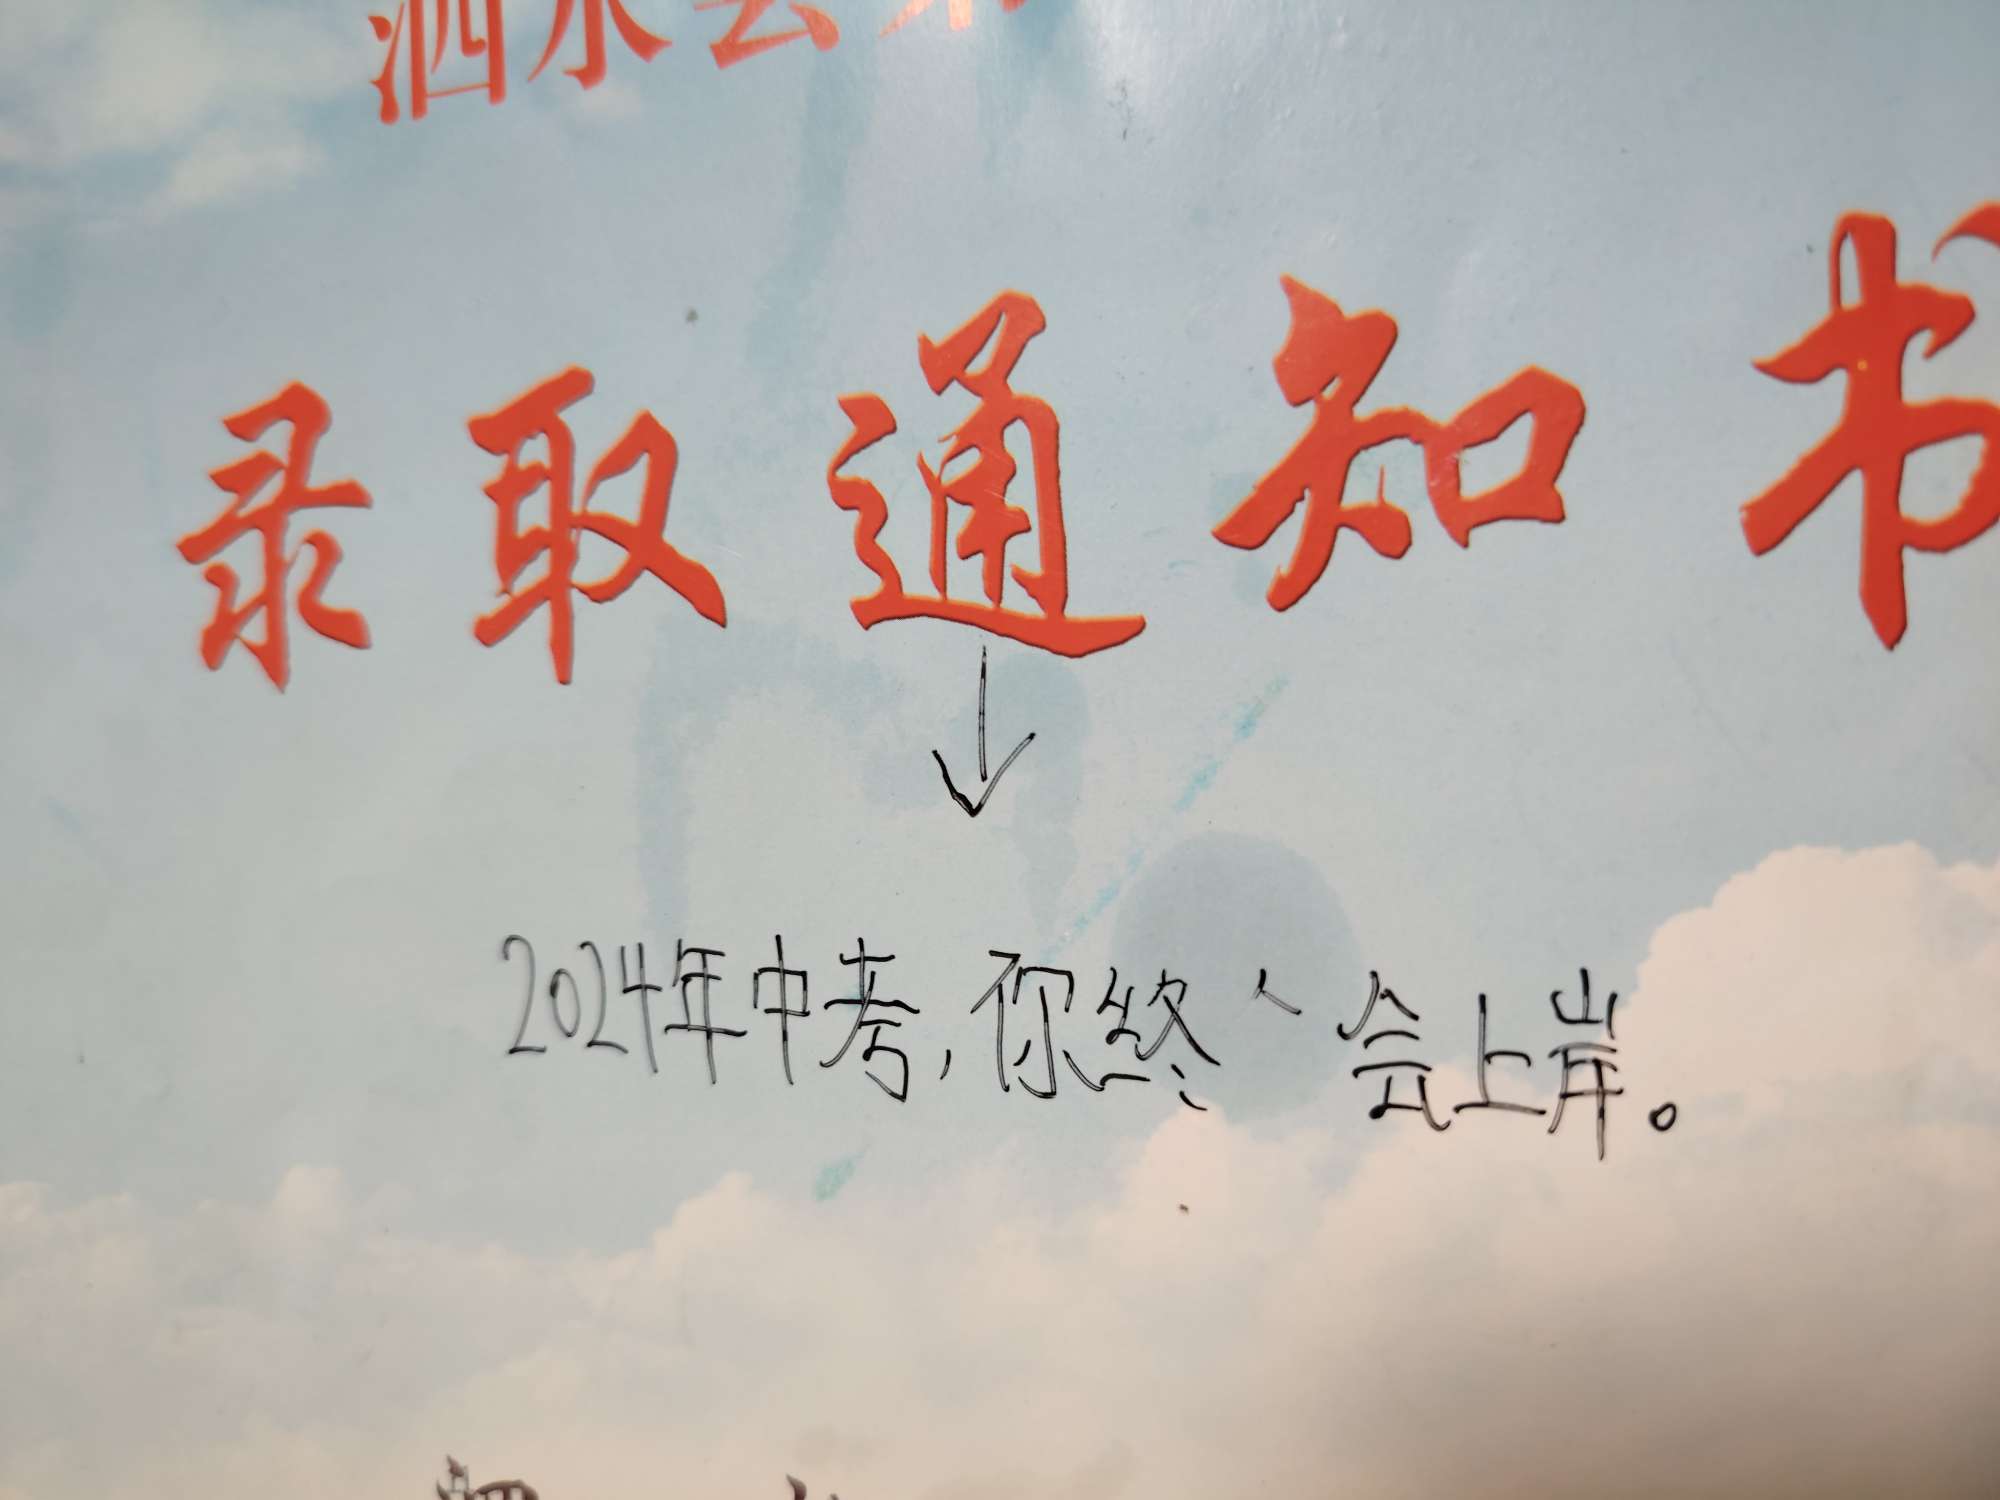 泗水县
录取通知书
2024年中考,你终会上岸。